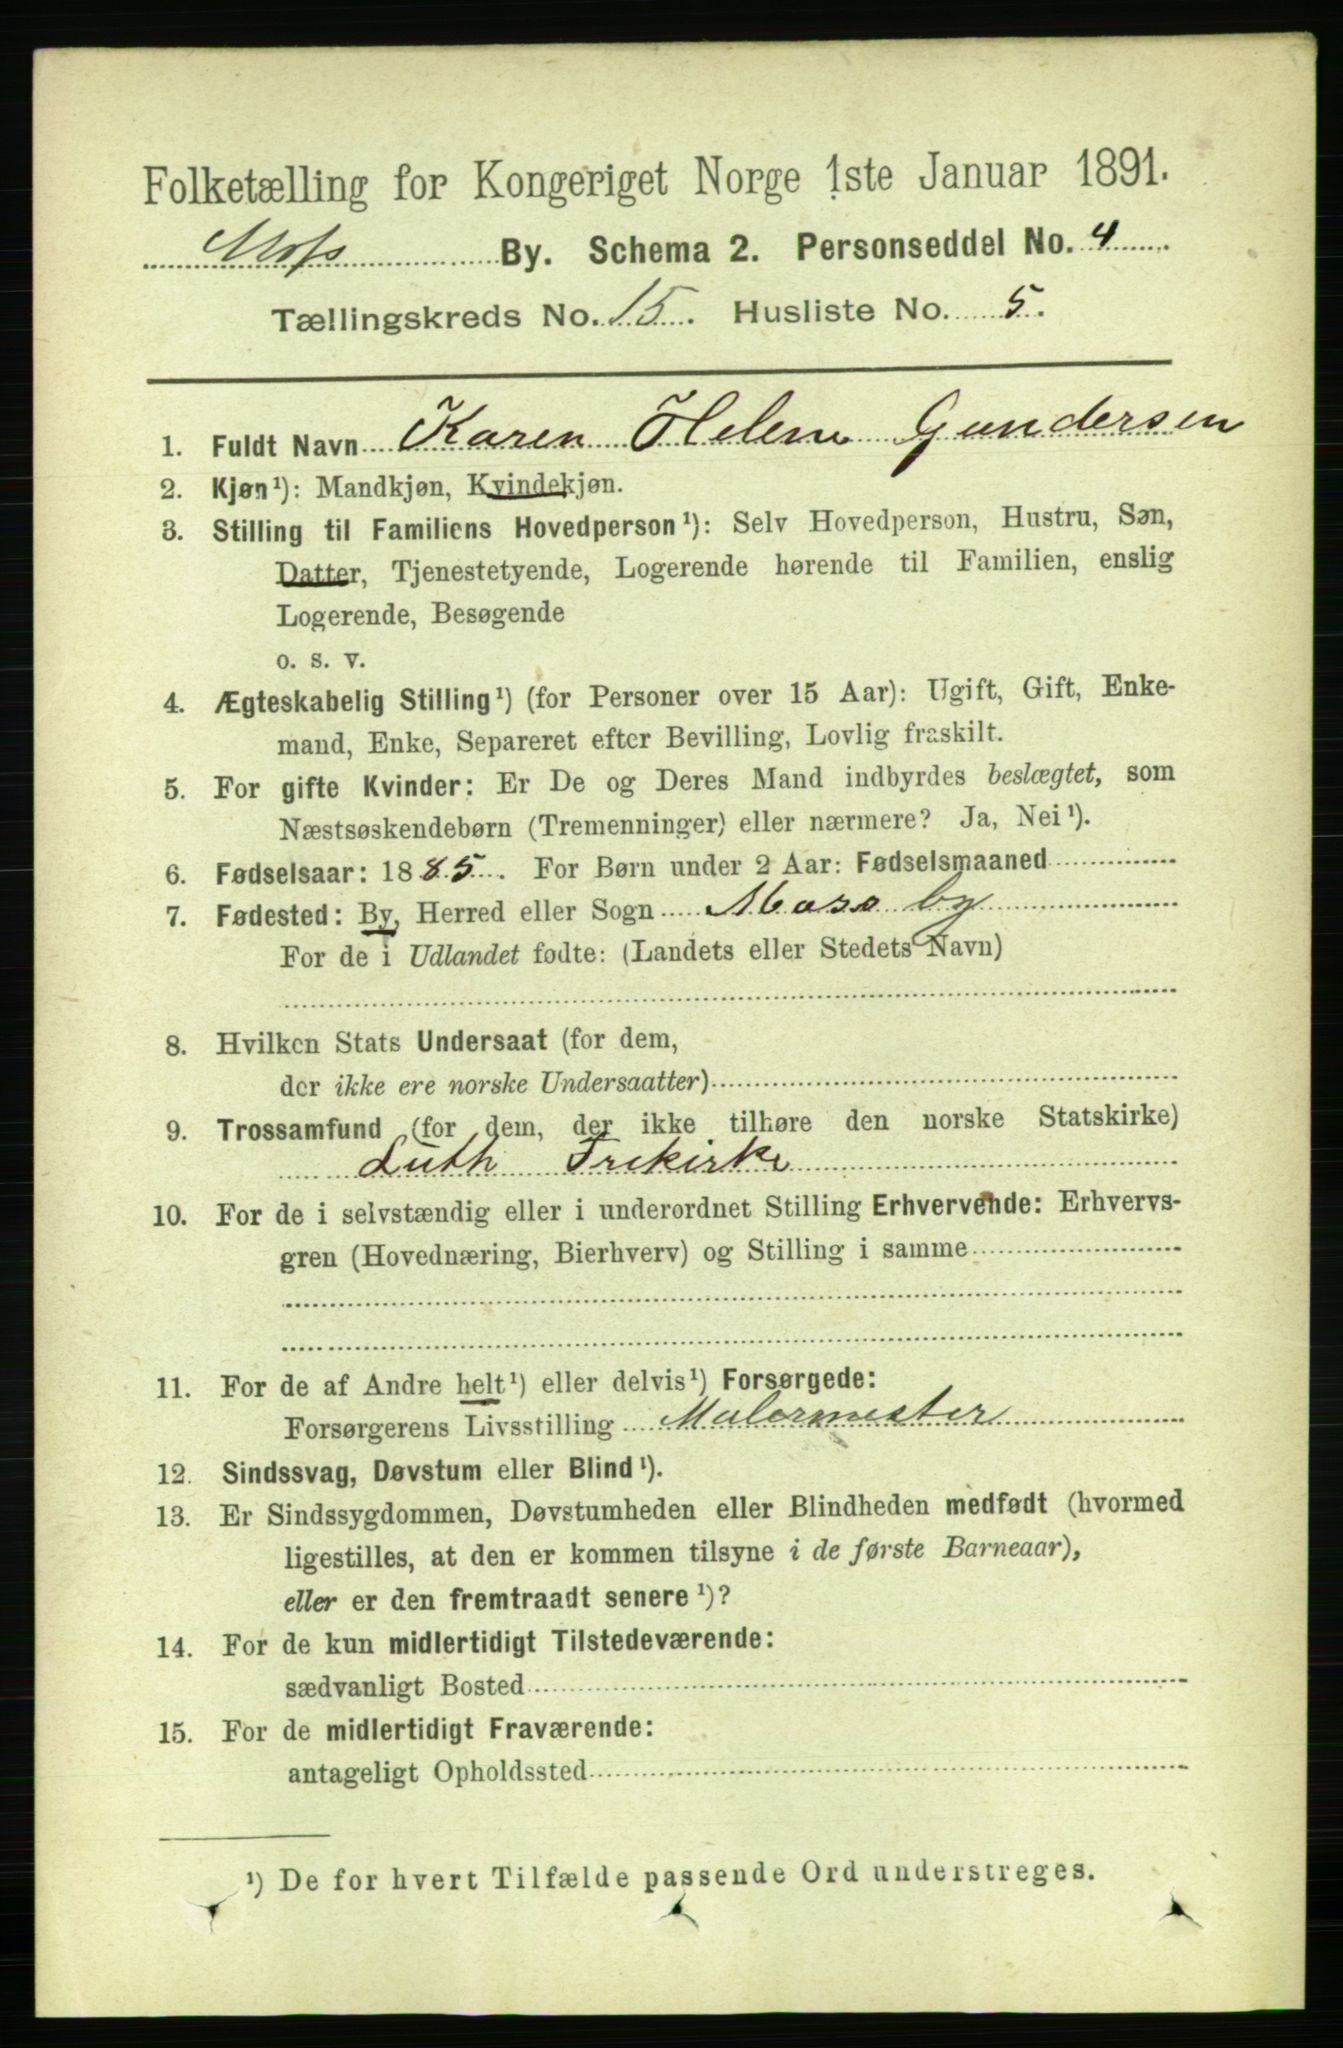 Folketælling for Kongeriget Norge 1ste Januar 1891.
Moss By. Schema 2. Personseddel No. 4
Tællingskreds No. 15. Husliste No. 5.
1. Fuldt Navn Karen Helene Gundersen
2. Kjøn¹): Mandkjøn, Kvindekjøn.
3. Stilling til Familiens Hovedperson¹): Selv Hovedperson, Hustru, Søn,
Datter, Tjenestetyende, Logerende hørende til Familien, enslig
Logerende, Besøgende
o. s. v.
4. Ægteskabelig Stilling¹) (for Personer over 15 Aar): Ugift, Gift, Enke-
mand, Enke, Separeret efter Bevilling, Lovlig fraskilt.
5. For gifte Kvinder: Er De og Deres Mand indbyrdes beslægtet, som
Næstsøskendebørn (Tremenninger) eller nærmere? Ja, Nei¹).
6. Fødselsaar: 1885. For Børn under 2 Aar: Fødselsmaaned
7. Fødested: By, Herred eller Sogn Moss by
For de i Udlandet fødte: (Landets eller Stedets Navn)
8. Hvilken Stats Undersaat (for dem,
der ikke ere norske Undersaatter)
9. Trossamfund (for dem, der ikke tilhøre den norske Statskirke)
Luth Frikirke
10. For de i selvstændig eller i underordnet Stilling Erhvervende: Erhvervs-
gren (Hovednæring, Bierhverv) og Stilling i samme
11. For de af Andre helt¹) eller delvis¹) Forsørgede:
Forsørgerens Livsstilling Malermester
12. Sindssvag, Døvstum eller Blind¹).
13. Er Sindssygdommen, Døvstumheden eller Blindheden medfødt (hvormed
ligestilles, at den er kommen tilsyne i de første Barneaar),
eller er den fremtraadt senere¹)?
14. For de kun midlertidigt Tilstedeværende:
sædvanligt Bosted
15. For de midlertidigt Fraværende:
antageligt Opholdssted
¹) De for hvert Tilfælde passende Ord understreges.